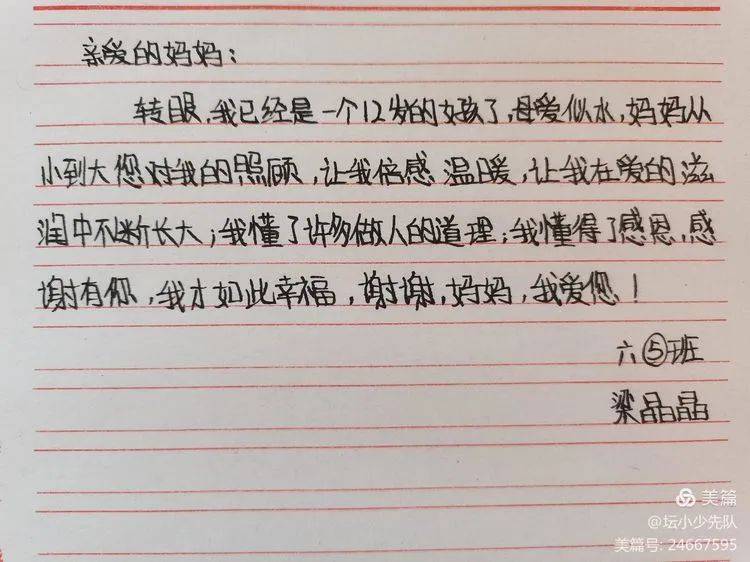 亲爱的妈妈：
转眼，我已经是一个12岁的女孩了，母爱似水，妈妈从
小到大您对我的照顾，让我倍感温暖，让我在爱的滋
润中不断长大；我懂了许多做人的道理；我懂得了感恩，感
谢有你，我才如此幸福，谢谢，妈妈，我爱您！
六⑤班
梁晶晶
美篇
@坛小少先队
美篇号: 24667595